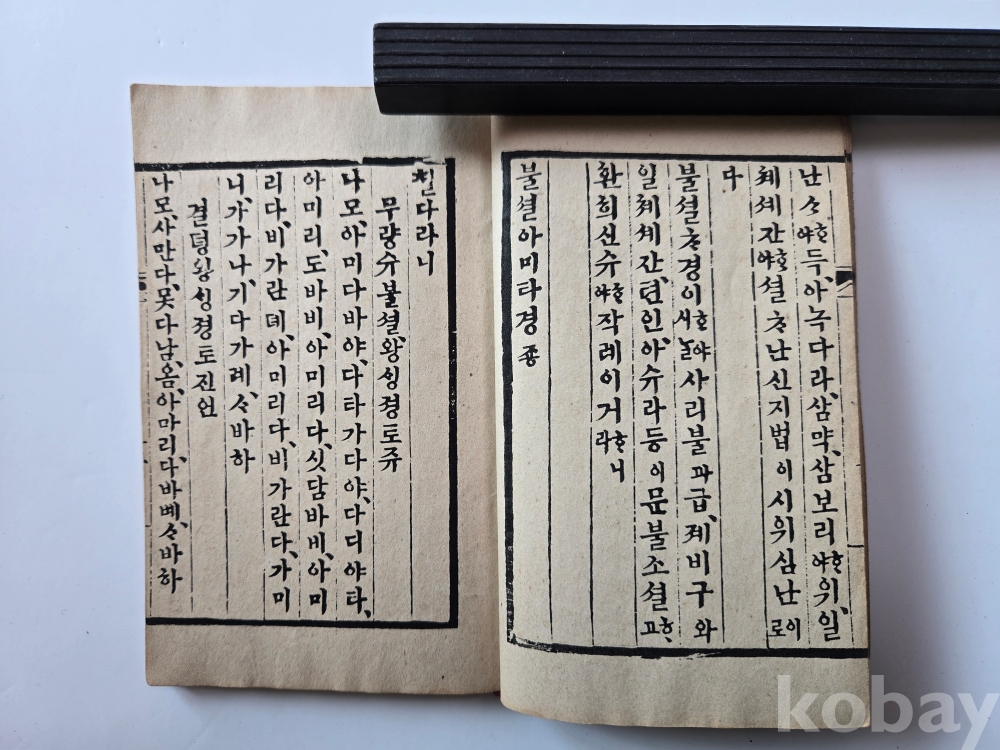 난々ᄒᆞ야득、아녹다라、삼먁、삼보리ᄒᆞ야위、일
톄셰간ᄒᆞ야셜ᄎᆞ난신지법이시위심난이로
다
불셜ᄎᆞ경이ᄒᆞ야시ᄂᆞᆯ사리불과급、졔비구와
일톄셰간、텬인、아슈라등이문불소셜ᄒᆞ고
환희신슈ᄒᆞ야작례이거ᄒᆞ니라
불셜아미타경죵
다라니
무량슈불셜왕싱졍토쥬
나모、아미다바야、다타가다야、다디야타、
아미리、도바비、아미리다、싯담바비、아미
리다、비가란뎨、아미리다、비가란다、가미
니、가가나、기다가례、々바하
결뎡왕싱졍토진언
나모、사만다、못다남、옴、아마리、다바볘、々바하
kobay